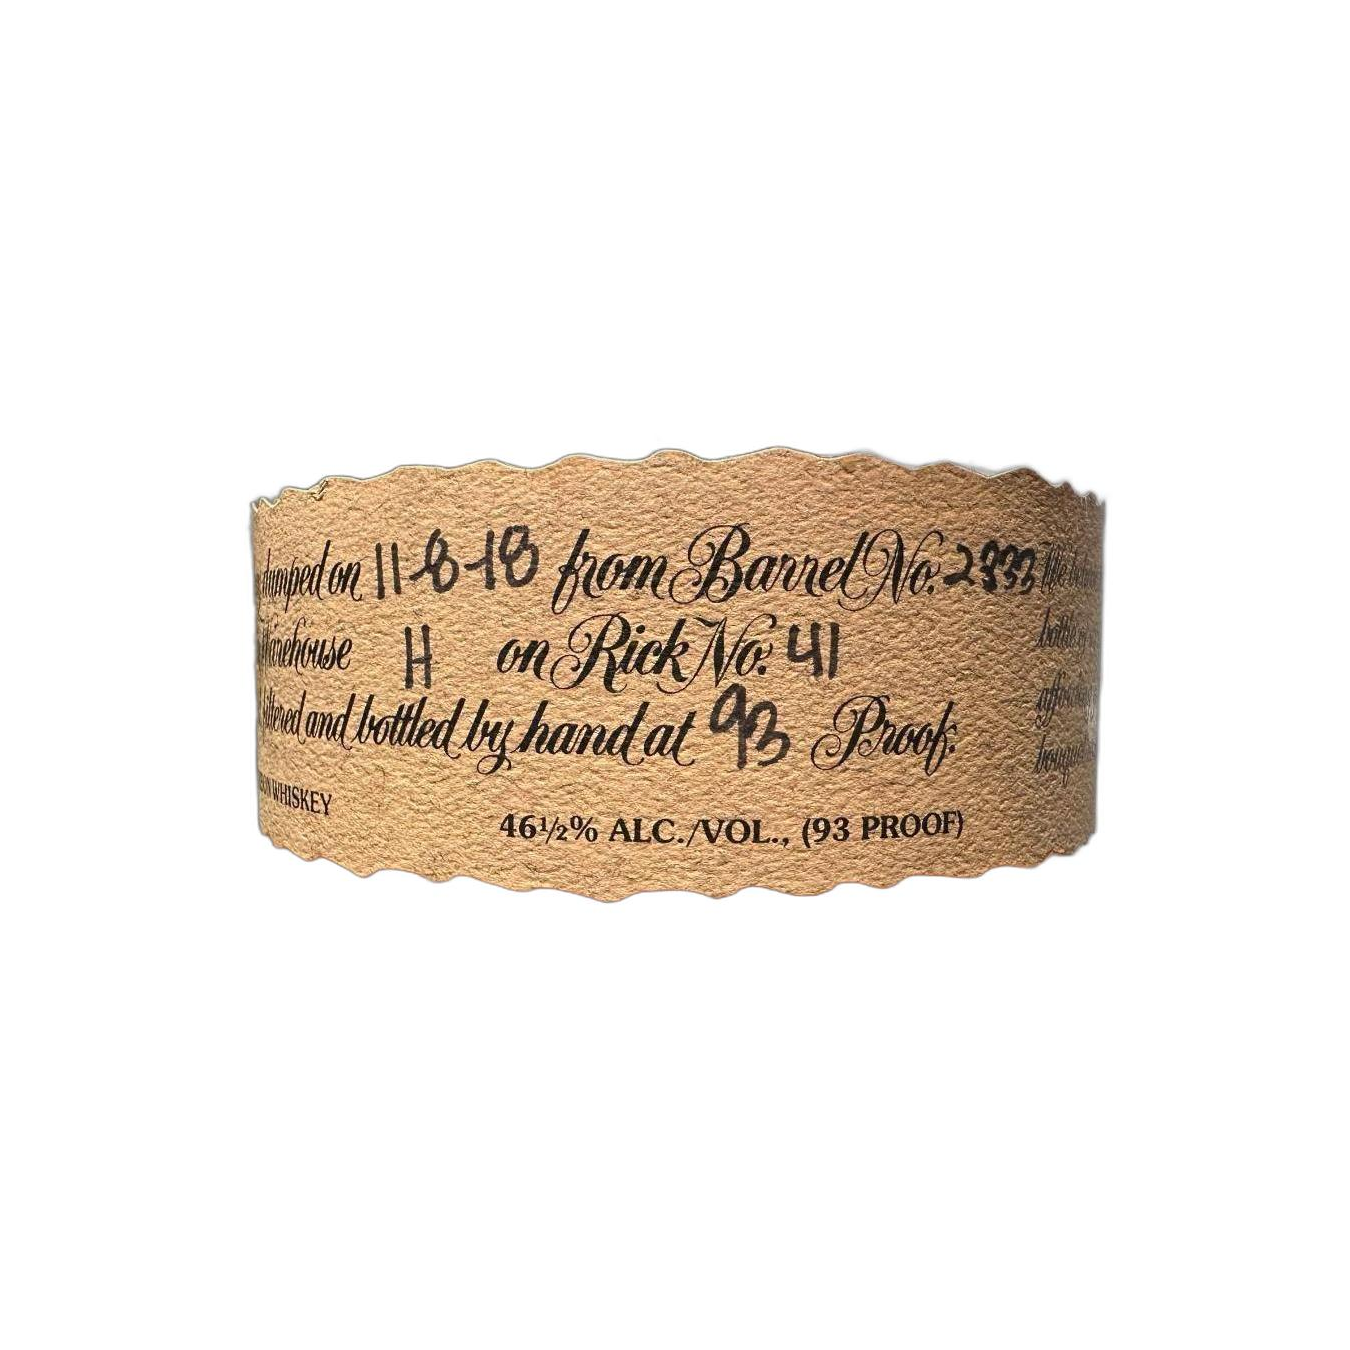 dumped on 11-8-18 from Barrel No. 2333
Warehouse H on Rick No. 41
filtered and bottled by hand at 93 Proof.
WHISKEY
46½% ALC./VOL., (93 PROOF)